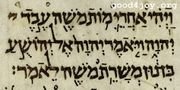 good4joy.org
ויהי אחרי מות משה עבד
יהוה ויאמר יהוה אל יהושע
בן נון משרת משה לאמר׃